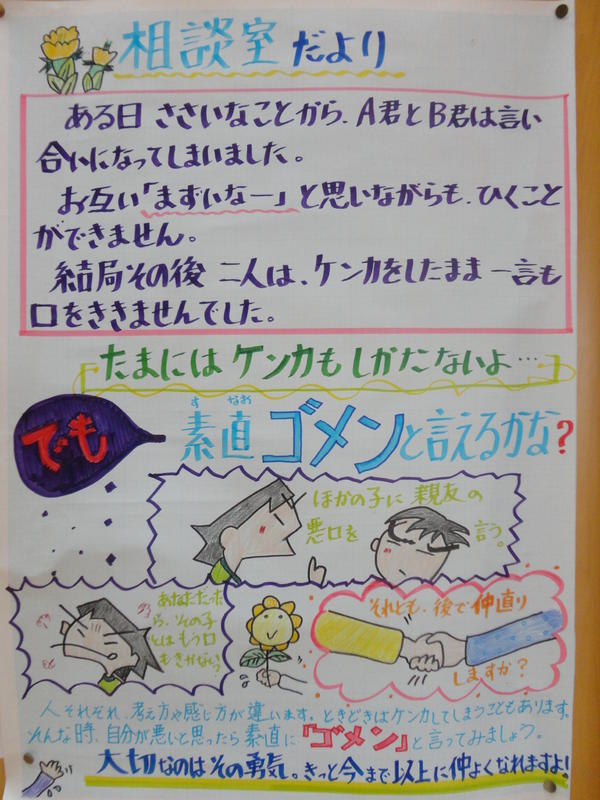 相談室だより
ある日 ささいなことから、A君とB君は言い
合いになってしまいました。
お互い「まずいなー」と思いながらも、ひくこと
ができません。
結局その後 二人は、ケンカをしたまま一言も
口をききませんでした。
たまにはケンカもしかたないよ…
でも
すなお
素直ゴメンと言えるかな?
ほかの子に親友の
悪口を言う。
あなただった
ら、その子
とはもう口
もきかない?
それとも、後で仲直り
しますか?
人それぞれ、考え方や感じ方が違います。ときどきはケンカしてしまうこともあります。
そんな時、自分が悪いと思ったら素直に『ゴメン』と言ってみましょう。
大切なのはその勇気。きっと今まで以上に仲よくなれますよ!